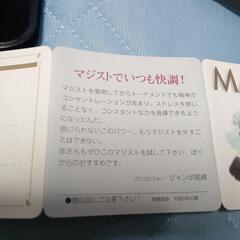 マジストでいつも快調!
マジストを愛用してからトーナメントでも精神の
コンセントレーションが高まり、ストレスを感じ
ることなく、コンスタントな力を発揮できるよう
になったんだ。
信じられないこのパワー、もうマジストを外すこ
とはできない。
皆さんもぜひこのマジストを試して下さい、ぼく
からのおすすめです。
プロゴルファー ジャンボ尾崎
●類似品にご注意下さい!
M